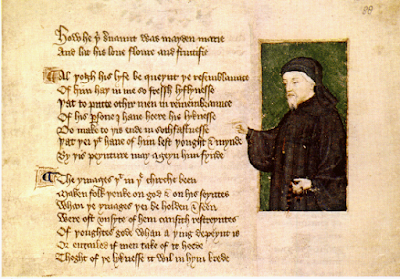 How he þi servaunt was mayden marie
And lat his loue floure and fructifie
Al þogh his lyfe be queynt þe resemblaunce
Of him haþ in me so fressh lyflynesse
Þat to putte othir men in remembraunce
Of his persone I haue heere his lyknesse
Do make to þis ende in sothfastnesse
Þat þei þt haue of him lest þought & mynde
By þis peynture may ageyn him fynde
The ymages þt in þe chirche been
Maken folk þenke on god & on his seyntes
Whan þe ymages þei beholden & seen
Were oft unsyte of hem causith restreyntes
Of þoughtes gode whan a þing depeynt is
Or entailed if men take of it heede
Thoght of þe lyknesse it wil in hym brede